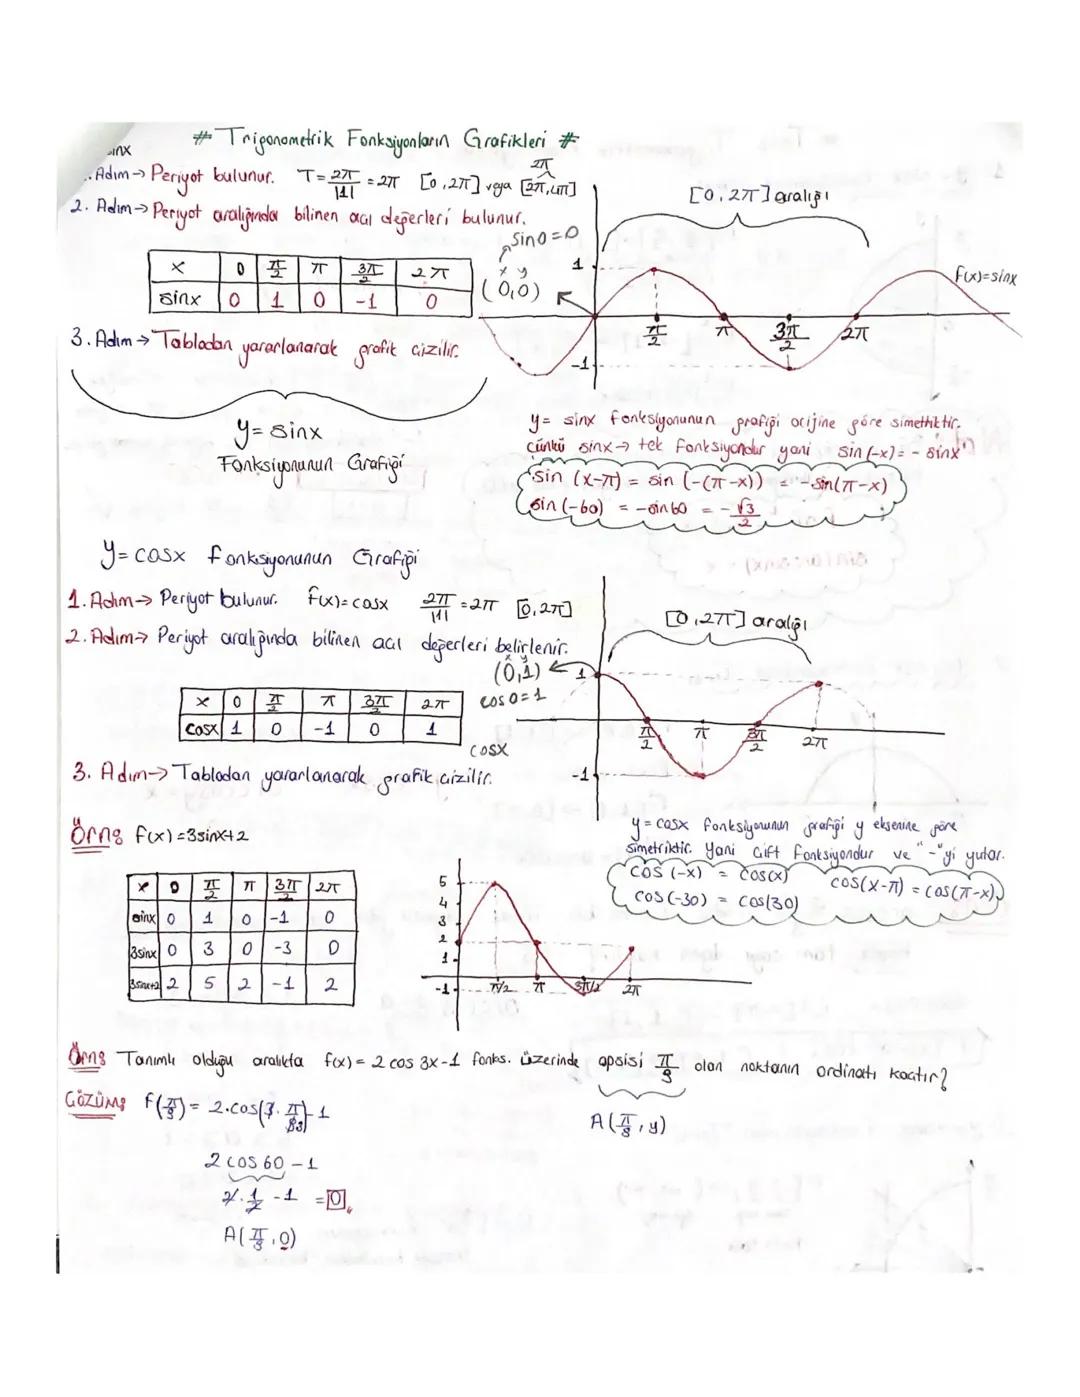 # Trigonometrik Fonksiyonların Grafikleri #
sinx
1. Adım → Periyot bulunur. T = 2π/|1| = 2π [0,2π] veya [2π,4π] 2π
2. Adım → Periyot aralığında bilinen açı değerleri bulunur.
[0,2π] aralığı
sin0=0
x y
(0,0)
x 0 π/2 π 3π/2 2π
sinx 0 1 0 -1 0
1
-1
π/2 π 3π/2 2π
f(x)=sinx
3. Adım → Tablodan yararlanarak grafik çizilir.
y= sinx
Fonksiyonunun Grafiği
y= sinx fonksiyonunun grafiği orijine göre simetriktir.
Çünkü sinx → tek fonksiyondur yani sin(-x) = - sinx
sin (x-π) = sin (-(π-x)) = -sin(π-x)
sin (-60) = -sin60 = -√3/2
y= cosx fonksiyonunun Grafiği
1. Adım → Periyot bulunur. f(x)= cosx 2π/|1| = 2π [0,2π]
2. Adım → Periyot aralığında bilinen açı değerleri belirlenir.
[0,2π] aralığı
x y
(0,1)
cos0=1
x 0 π/2 π 3π/2 2π
cosx 1 0 -1 0 1
cosx
1
-1
π/2 π 3π/2 2π
3. Adım → Tablodan yararlanarak grafik çizilir.
y = cosx fonksiyonunun grafiği y eksenine göre
simetriktir. Yani Çift fonksiyondur ve "-"yi yutar.
cos (-x) = cos(x)
cos(x-π) = cos(π-x)
cos (-30) = cos(30)
Örn: f(x) = 3sinx+2
x 0 π/2 π 3π/2 2π
sinx 0 1 0 -1 0
3sinx 0 3 0 -3 0
3sinx+2 2 5 2 -1 2
5
4
3
2
1
-1
π/2 π 3π/2 2π
Örn: Tanımlı olduğu aralıkta f(x) = 2 cos 3x-1 fonks. üzerinde apsisi π/9 olan noktanın ordinatı kaçtır?
Çözüm: f(π/9) = 2.cos(3.π/9)-1
A(π/9, y)
2 cos 60 - 1
2.1/2 - 1 = 0
A(π/9, 0)